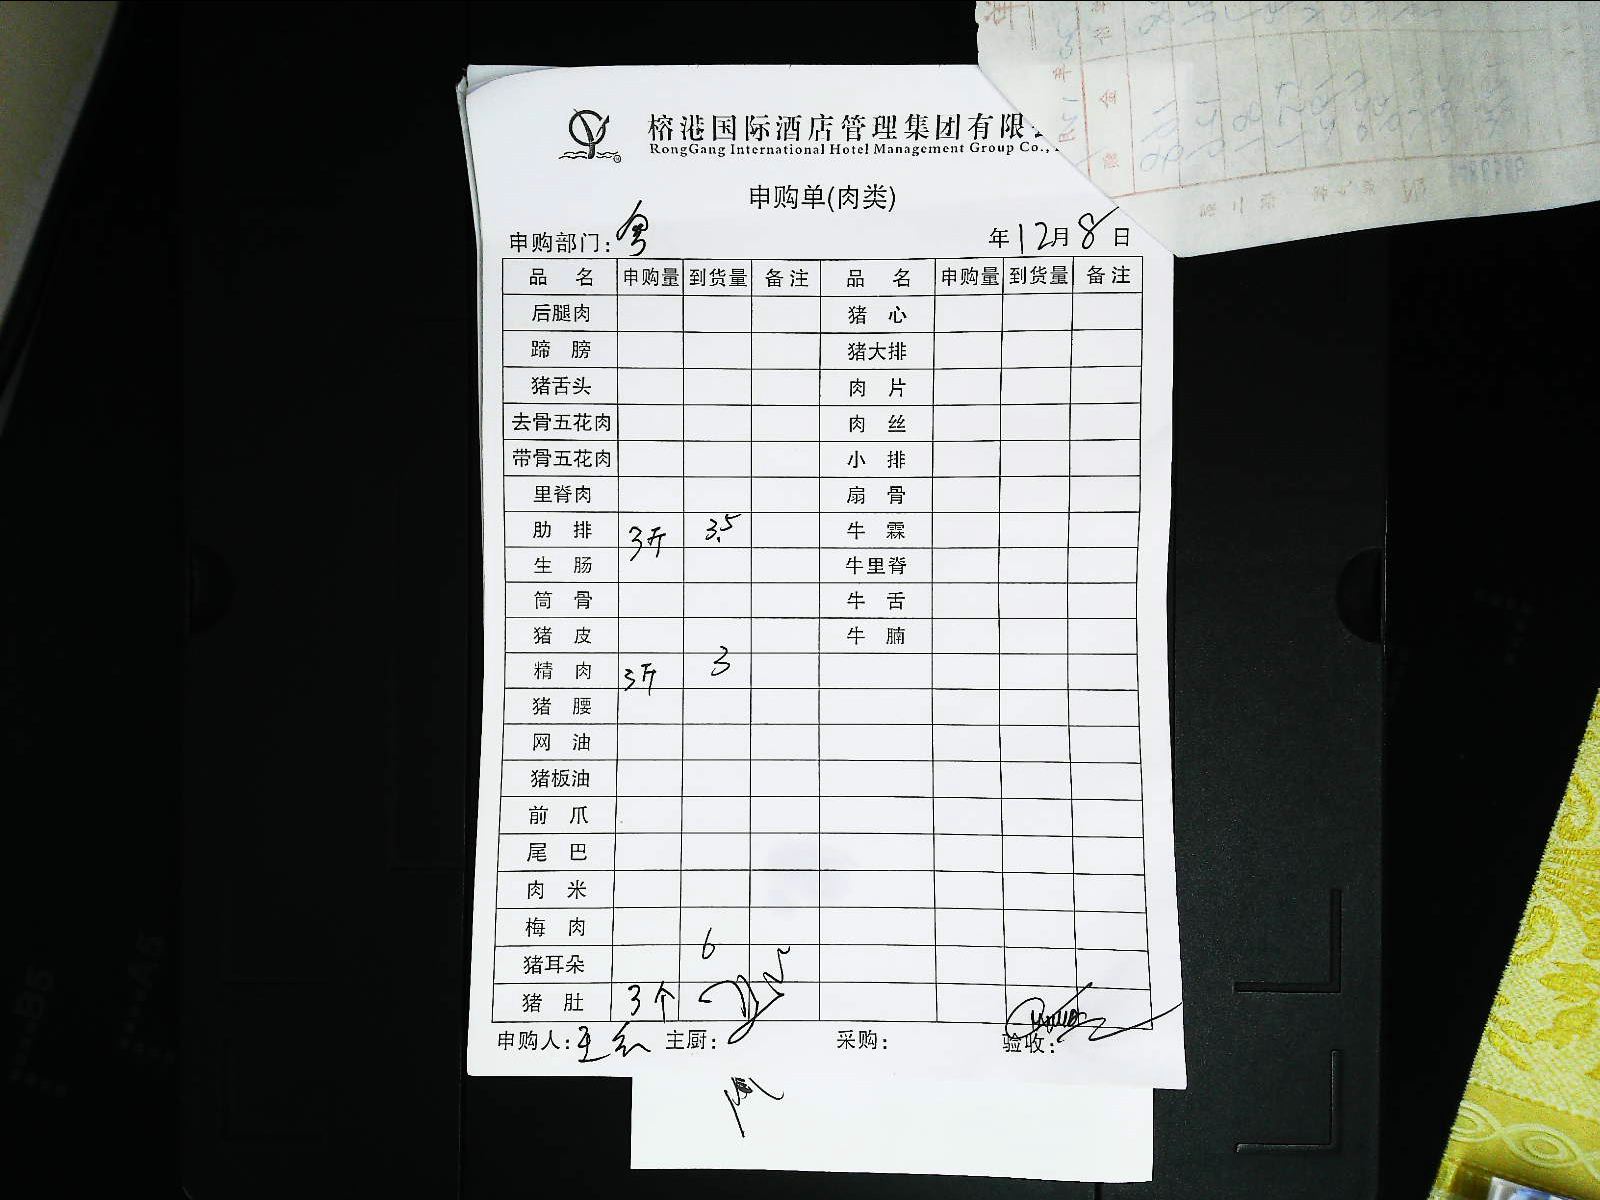 榕港国际酒店管理集团有限
RongGang International Hotel Management Group Co.,
申购单(肉类)
申购部门: 粤 年12月8日
品 名 申购量 到货量 备注 品 名 申购量 到货量 备注
后腿肉 猪 心
蹄 膀 猪大排
猪舌头 肉 片
去骨五花肉 肉 丝
带骨五花肉 小 排
里脊肉 扇 骨
肋 排 3斤 3.5 牛 霖
生 肠 牛里脊
筒 骨 牛 舌
猪 皮 牛 腩
精 肉 3斤 3
猪 腰
网 油
猪板油
前 爪
尾 巴
肉 米
梅 肉
猪耳朵 6
猪 肚 3个
申购人: 王 主厨: 采购: 验收: